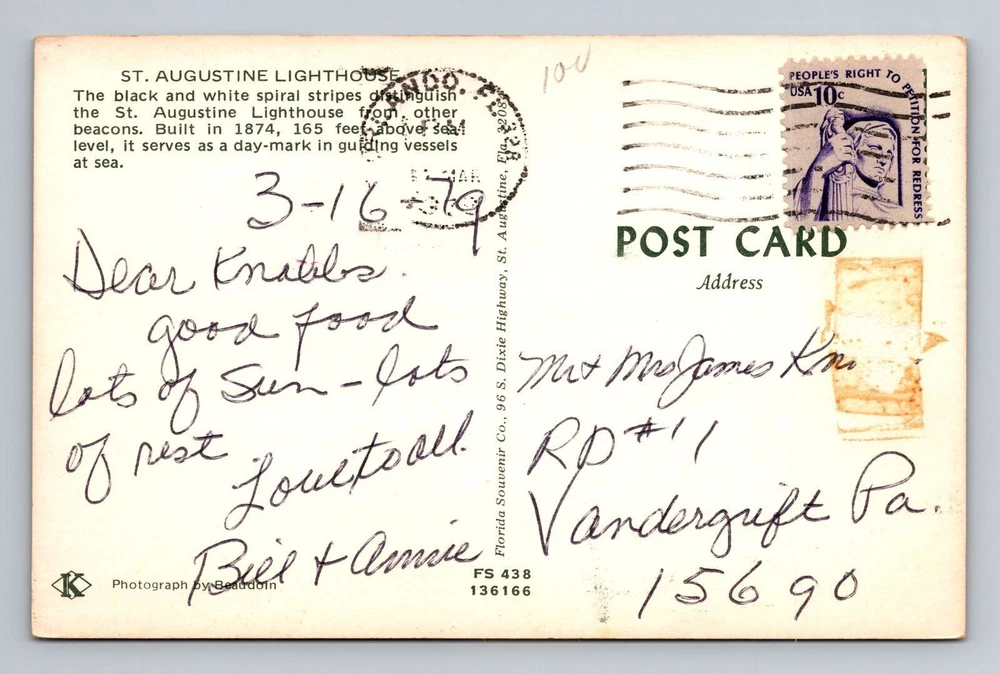 ST. AUGUSTINE LIGHTHOUSE
The black and white spiral stripes distinguish
the St. Augustine Lighthouse from other
beacons. Built in 1874, 165 feet above sea
level, it serves as a day-mark in guiding vessels
at sea.
3-16-79
Dear Knabbs.
good food
lots of Sun - lots
of rest
Love to all.
Bill + Annie
K
Photograph by Beaudoin
FS 438
136166
Florida Souvenir Co., 96 S. Dixie Highway, St. Augustine, Fla. 32084
ORLANDO, FL 328
PM
MAR
100
PEOPLE'S RIGHT TO PETITION FOR REDRESS
USA 10c
POST CARD
Address
Mr + Mrs James Kn
RD #11
Vandergrift Pa.
15690